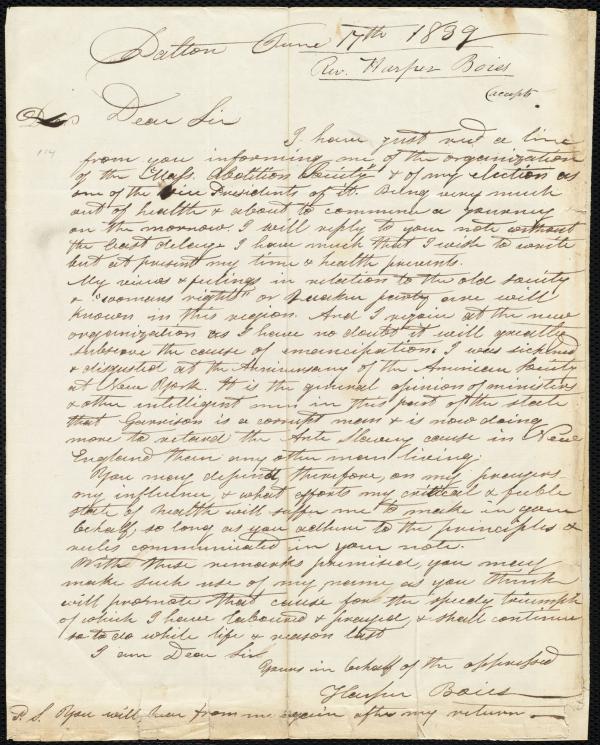 Dalton June 17th 1839
Rev. Harper Boies
(accepts.
Dear Sir
I have just red a line
from you informing me of the organization
of the Mass. Abolition Society & of my election as
one of the vice Presidents of it. Being very much
out of health & about to commence a journey
on the morrow. I will reply to your note without
the least delay. I have much that I wish to write
but at present my time & health prevents.
My views & feelings in relation to the old society
& "womans rights" or Quaker party are well
known in this region. And I rejoice at the new
organization as I have no doubt it will greatly
subserve the cause of emancipation. I was sickened
& disgusted at the Anniversary of the American Society
at New York. It is the general opinion of ministers
& other intelligent men in this part of the state
that Garrison is a corrupt man & is now doing
more to retard the Ante Slavery cause in New
England than any other man living.
You may depend, therefore, on my prayers
my influence, & what efforts my critical & feeble
state of health will suffer me to make in your
behalf, so long as you adhere to the principles &
rules communicated in your note.
With these remarks premised, you may
make such use of my name as you think
will promote that cause for the speedy triumph
of which I have laboured & prayed & shall continue
so to do while life & reason last
I am Dear Sir
Yours in behalf of the oppressed
Harper Boies
P. S. You will hear from me again after my return